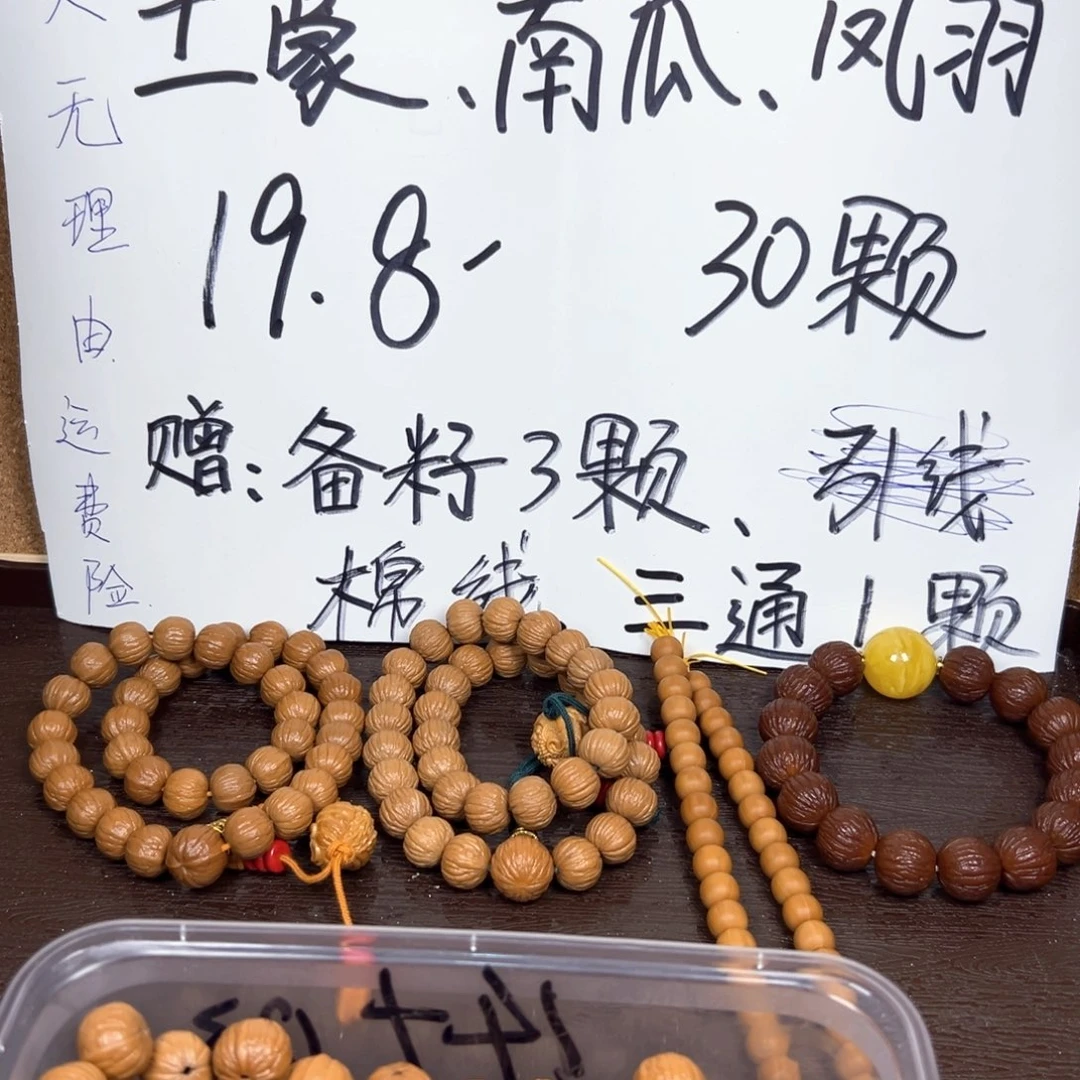 工蒙、南瓜、凤羽
19.8
30颗
赠：备籽3颗、引线
棉线 三通1颗
天无理由运费险